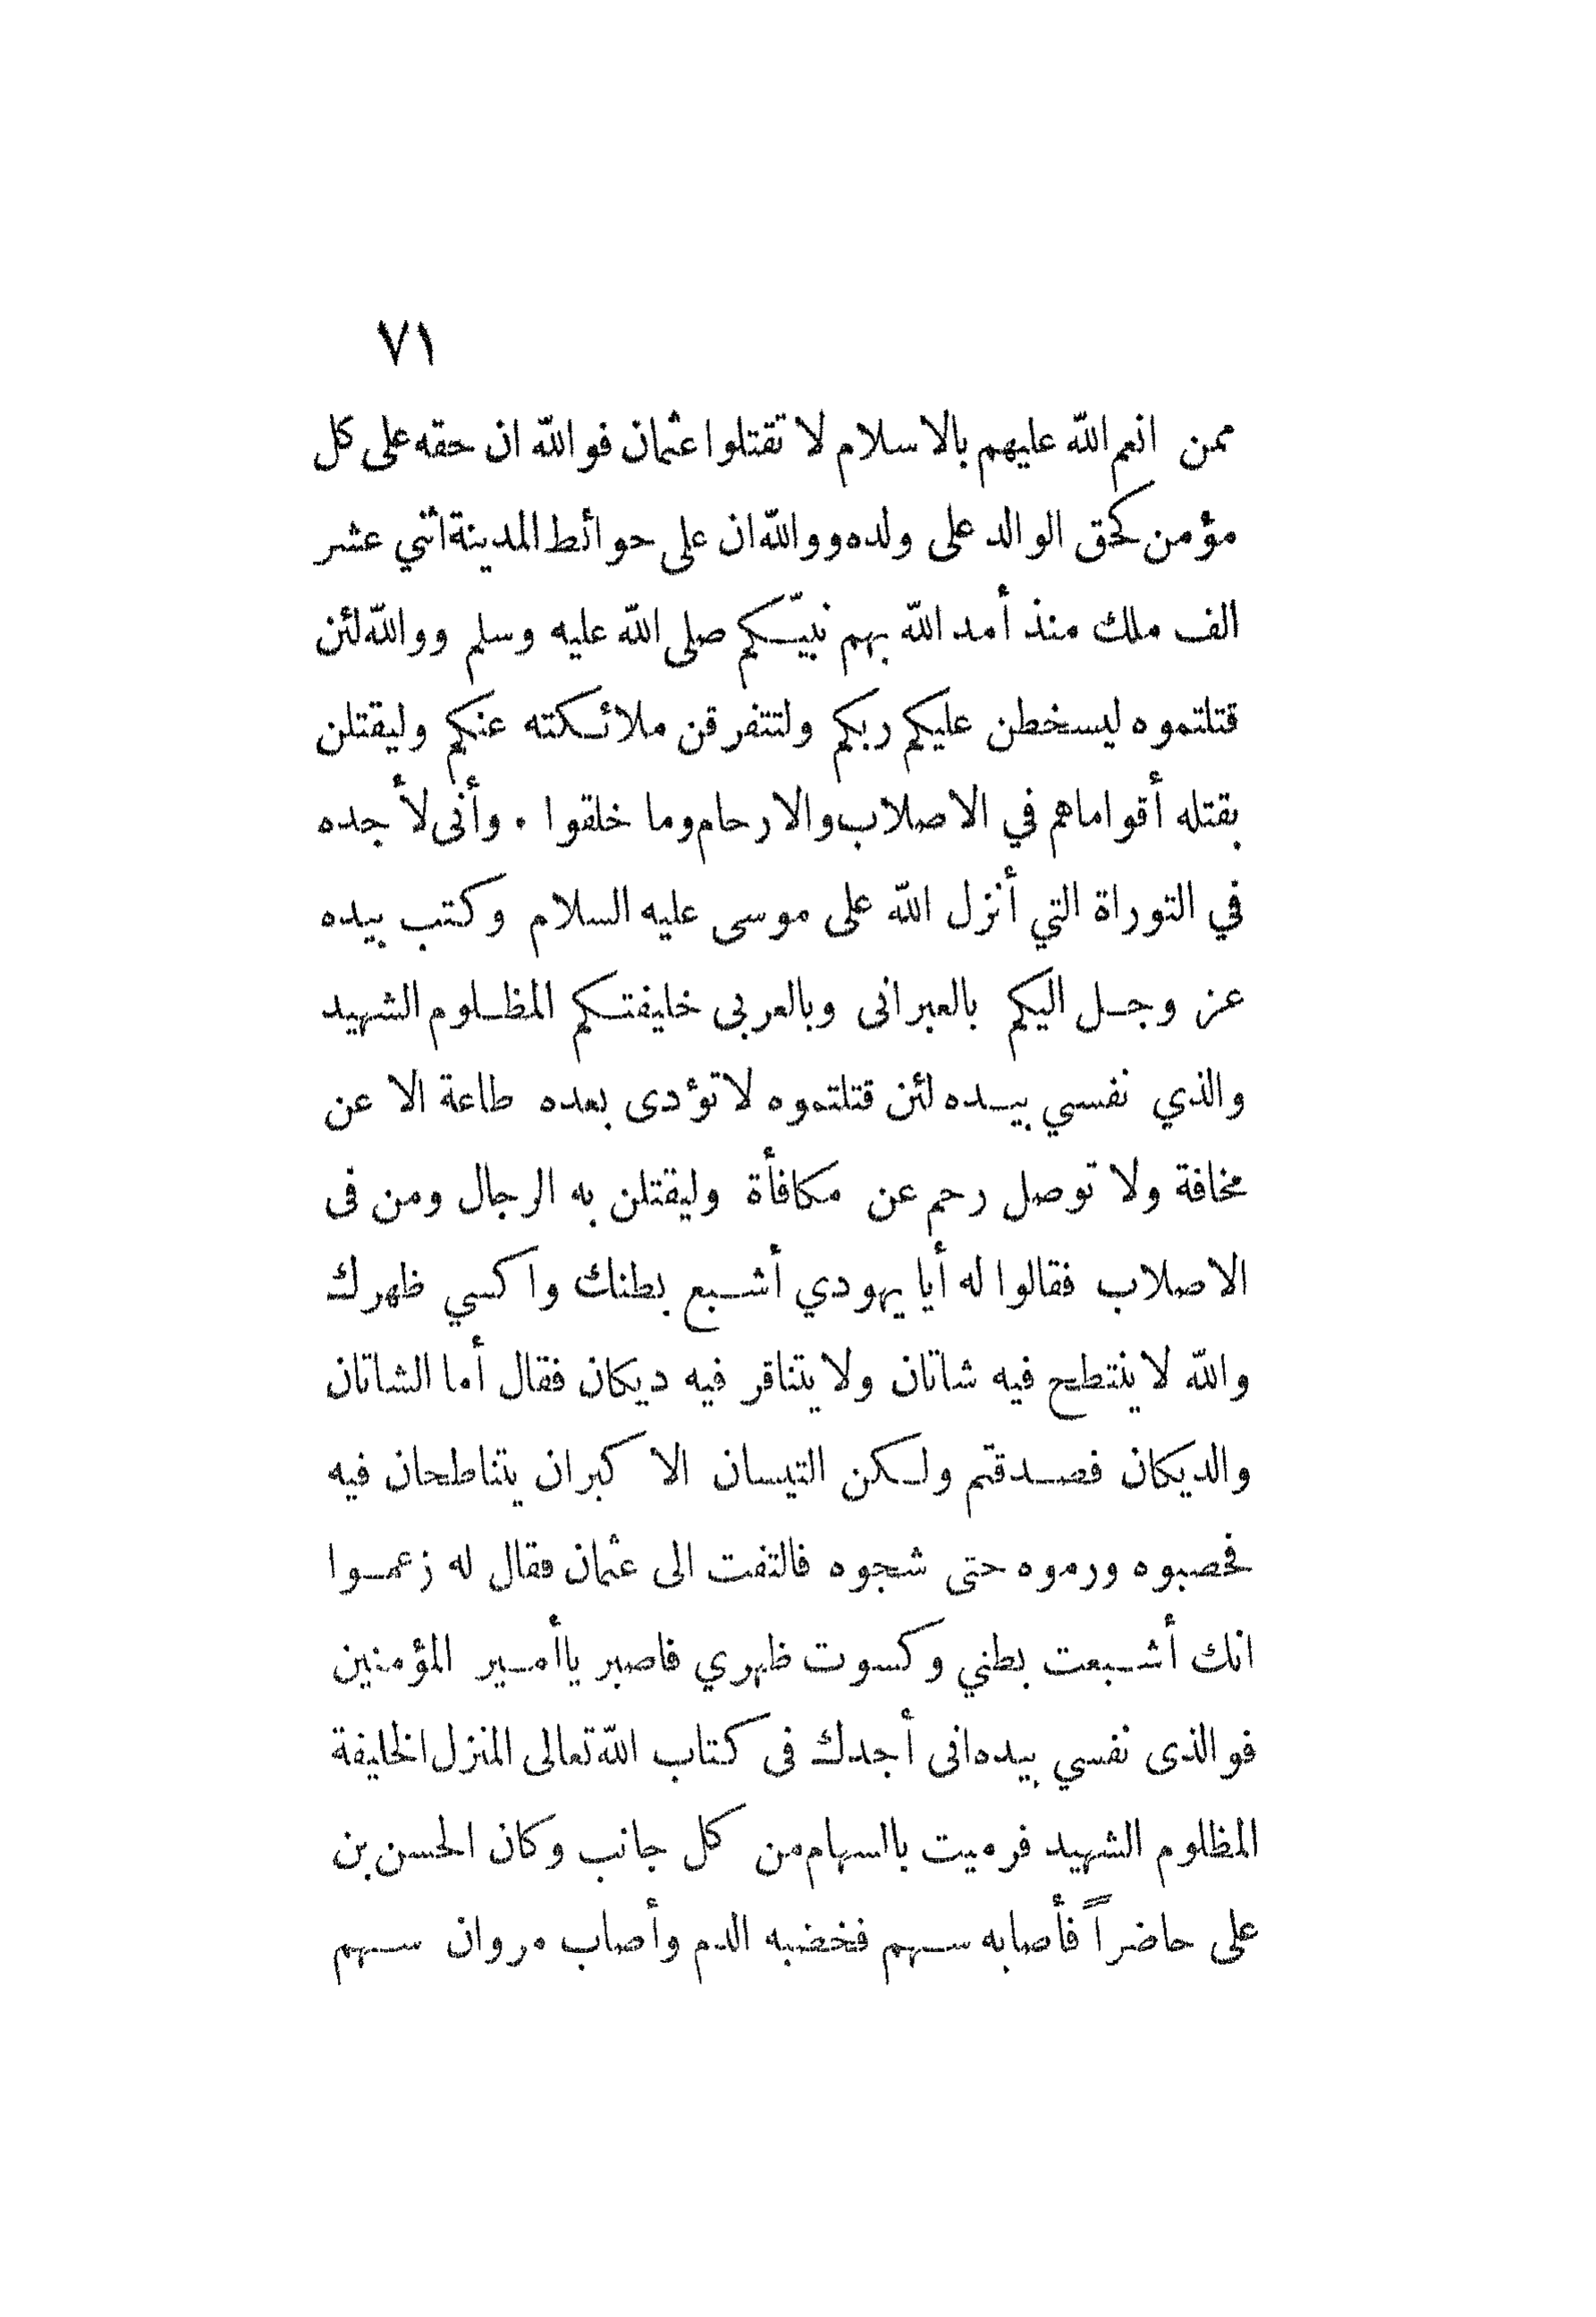 ٧١
ممن انعم الله عليهم بالاسلام لا تقتلوا عثمان فوالله ان حقه على كل
مؤمن كحق الوالد على ولده ووالله ان على حوائط المدينة اثني عشر
الف ملك منذ أمد الله بهم نبيّكم صلى الله عليه وسلم ووالله لئن
قتلتموه ليسخطن عليكم ربكم ولتتفرقن ملائكته عنكم وليقتلن
بقتله أقواماهم في الاصلاب والارحام وما خلقوا . وأنى لأجده
في التوراة التي أنزل الله على موسى عليه السلام وكتب بيده
عز وجل اليكم بالعبرانى وبالعربى خليفتكم المظلوم الشهيد
والذي نفسي بيده لئن قتلتموه لا تؤدى بعده طاعة الا عن
مخافة ولا توصل رحم عن مكافأة وليقتلن به الرجال ومن فى
الاصلاب فقالوا له أيا يهودي أشبع بطنك واكسي ظهرك
والله لا ينتطح فيه شاتان ولا يتناقر فيه ديكان فقال أما الشاتان
والديكان فصدقتم ولكن التيسان الاكبران يتناطحان فيه
فحصبوه ورموه حتى شجوه فالتفت الى عثمان فقال له زعموا
انك أشبعت بطني وكسوت ظهري فاصبر ياأمير المؤمنين
فوالذى نفسي بيده انى أجدك فى كتاب الله تعالى المنزل الخليفة
المظلوم الشهيد فرميت باالسهام من كل جانب وكان الحسن بن
على حاضراً فأصابه سهم فخضبه الدم وأصاب مروان سهم